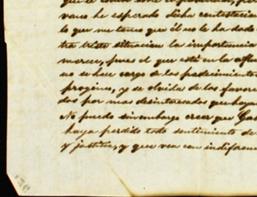 vano he esperado dicha contestacion
lo que me temo que él no le ha dado
tra triste situacion la importancia
merece, pues el que está en la
no se hace cargo de los padecimientos
progimo, y se olvida de los favores
dos por mas desinteresados que hayan
No puedo sin embargo creer que
haya perdido todo sentimiento de
y justicia, y que vea con indiferencia